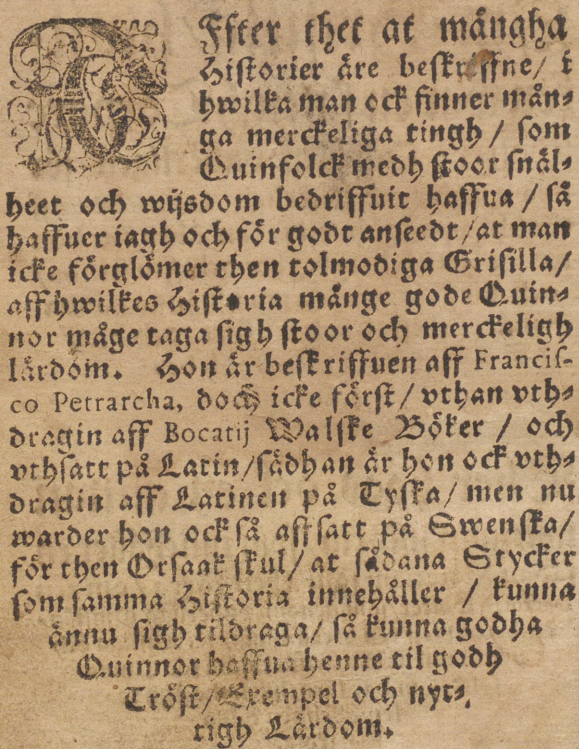 EFfter thet at mångha
Historier äre beskriffne/ i
hwilka man ock finner mån⸗
ga merckeliga tingh / som
Quinfolck medh stoor snäl⸗
heet och wijsdom bedriffuit haffua / så
haffuer iagh och för godt anseedt/at man
icke förglömer then tolmodiga Grisilla/
aff hwilkes Historia månge gode Quin⸗
nor måge taga sigh stoor och merckeligh
lärdom. Hon är beskriffuen aff Francis-
co Petrarcha, doch icke först/ vthan vth⸗
dragin aff Bocatij Walske Böker / och
vthsatt på Latin/sädhan är hon ock vth⸗
dragin aff Latinen på Tyska/ men nu
warder hon ock så affsatt på Swenska/
för then Orsaak skul/ at sådana Stycker
som samma Historia innehåller / kunna
ännu sigh tildraga/ så kunna godha
Quinnor haffua henne til godh
Tröst/Exempel och nyt⸗
tigh Lärdom.